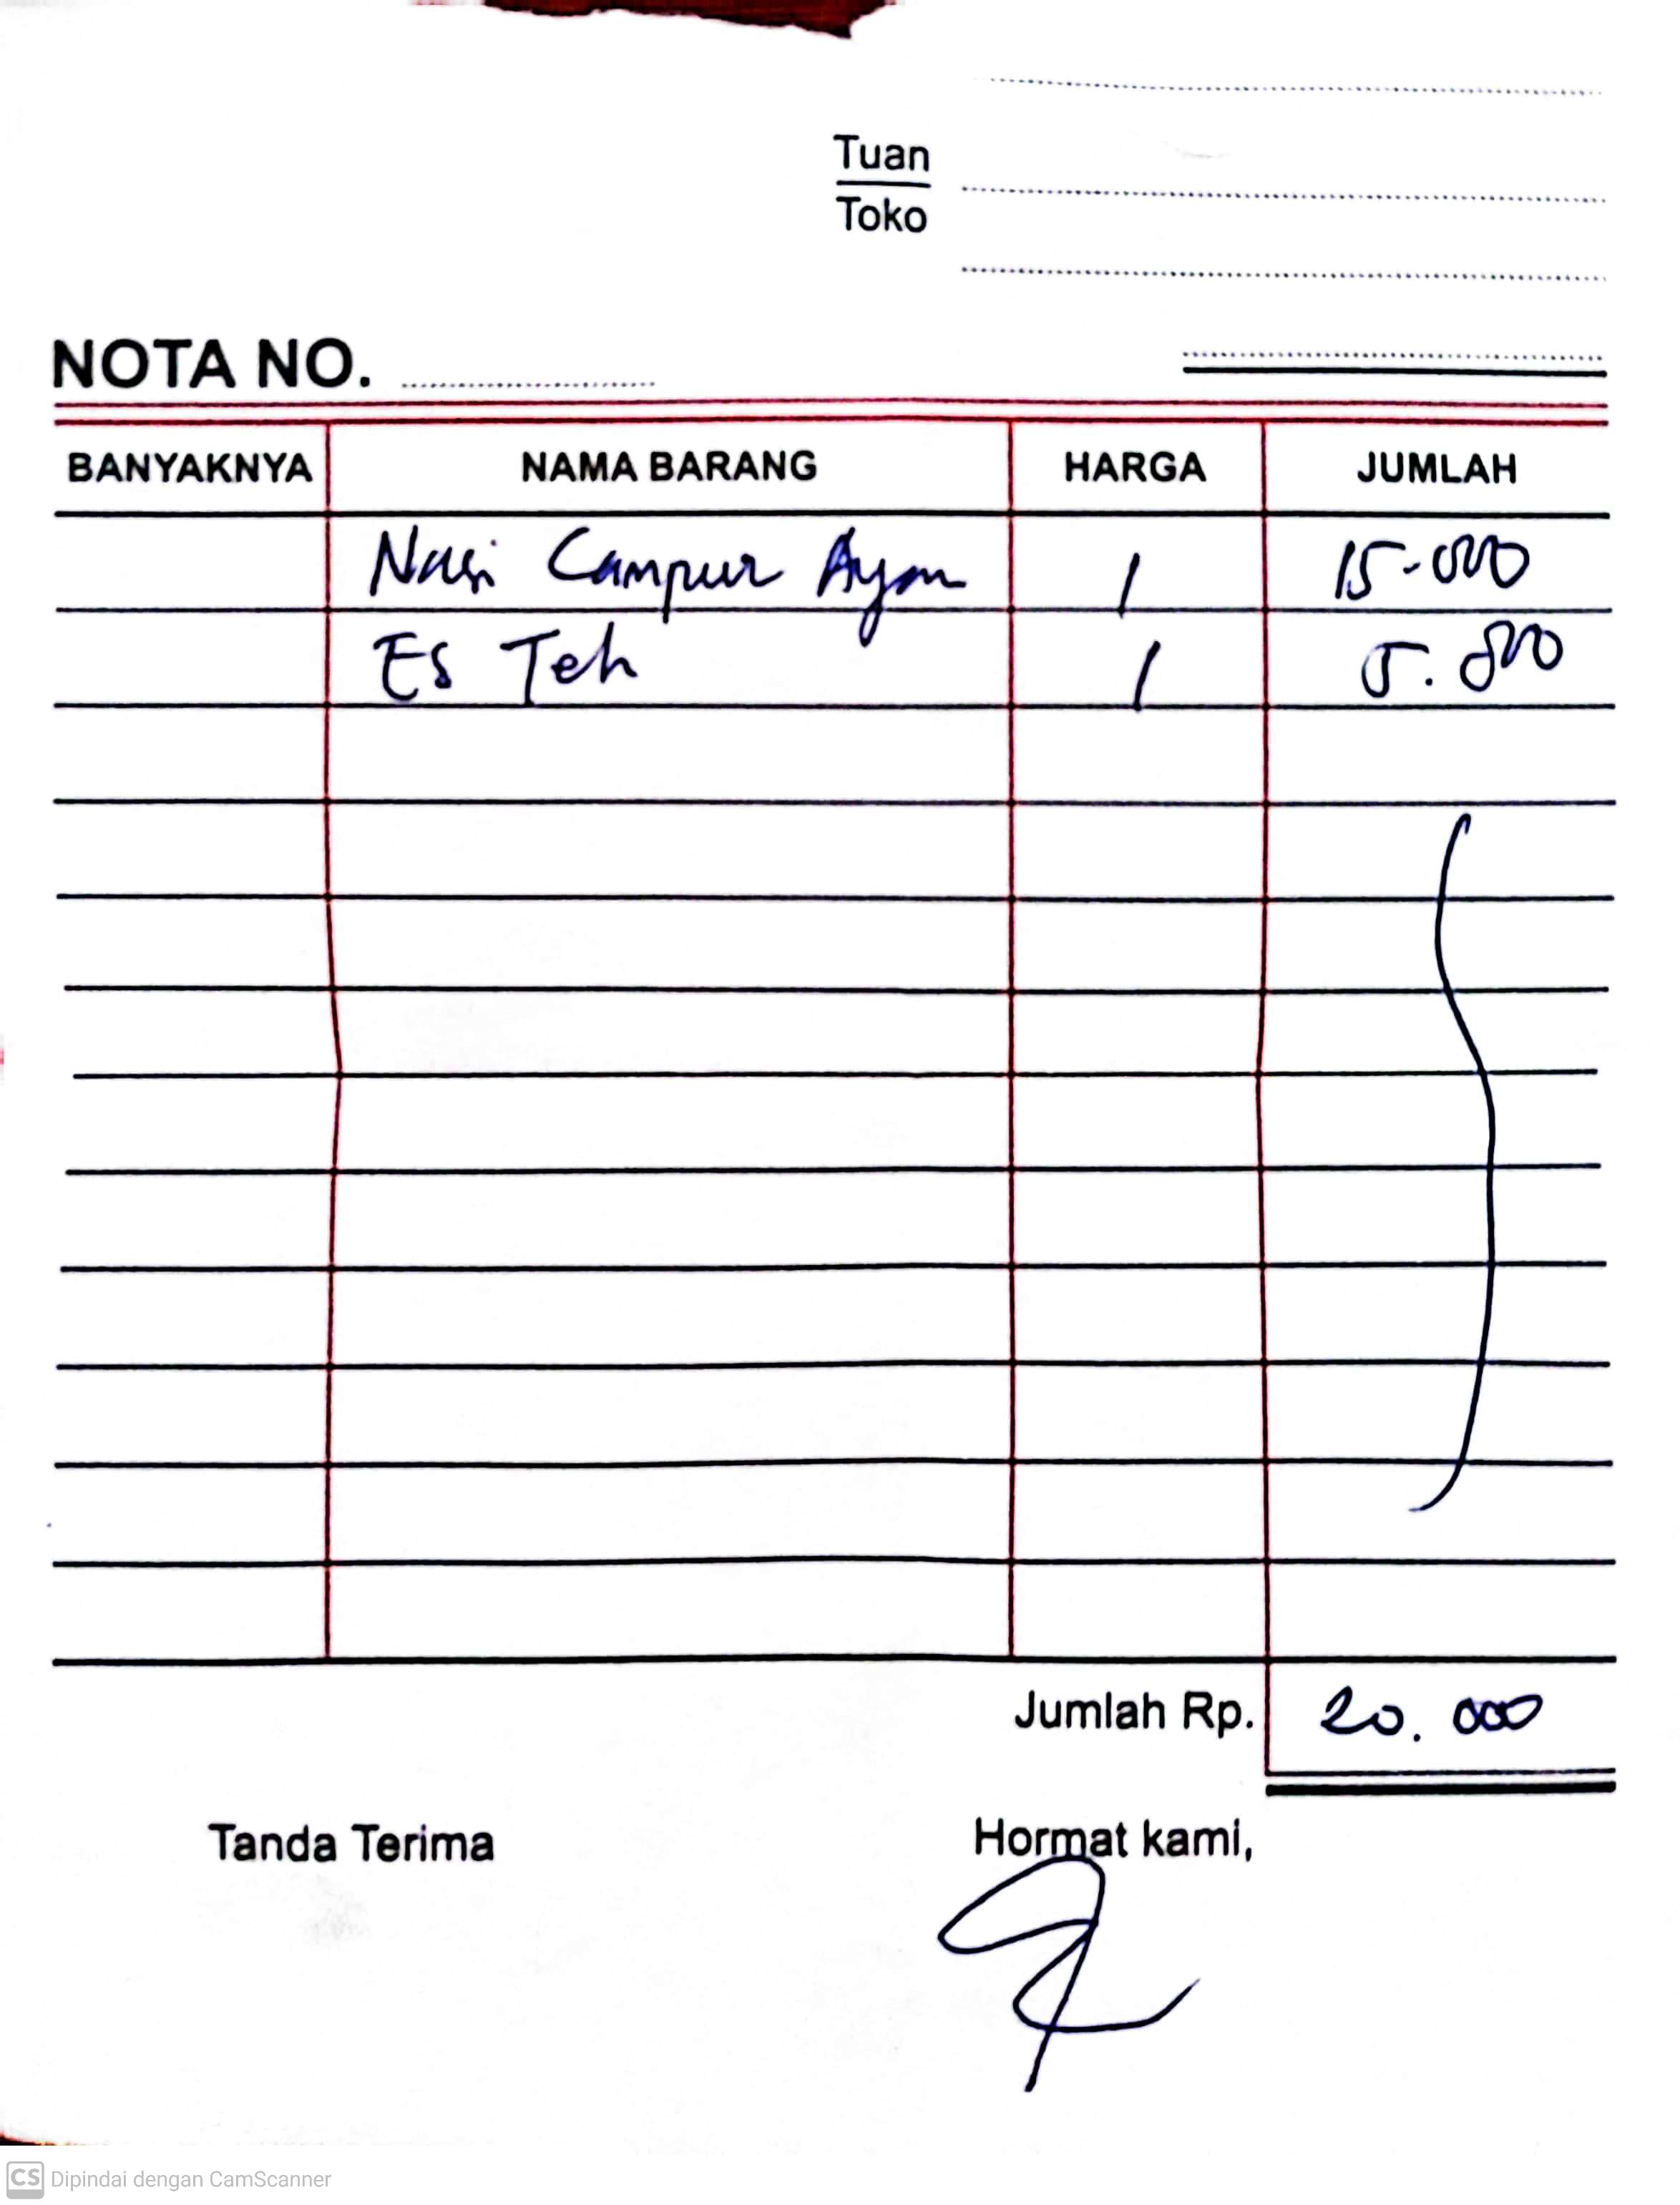 Tuan
Toko
NOTA NO.
BANYAKNYA NAMA BARANG HARGA JUMLAH
Nasi Campur Ayam 1 15.000
Es Teh 1 5.000
Jumlah Rp. 20.000
Tanda Terima Hormat kami,
CS Dipindai dengan CamScanner